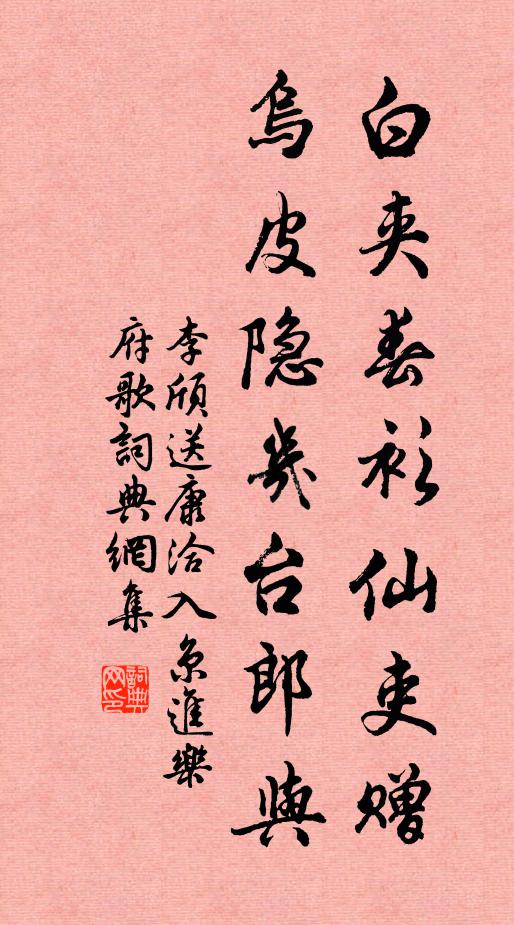 白夹春衫仙吏赠
烏皮隐几台郎與
李頎送康洽入京進樂
府歌詞典網集
詞典网印